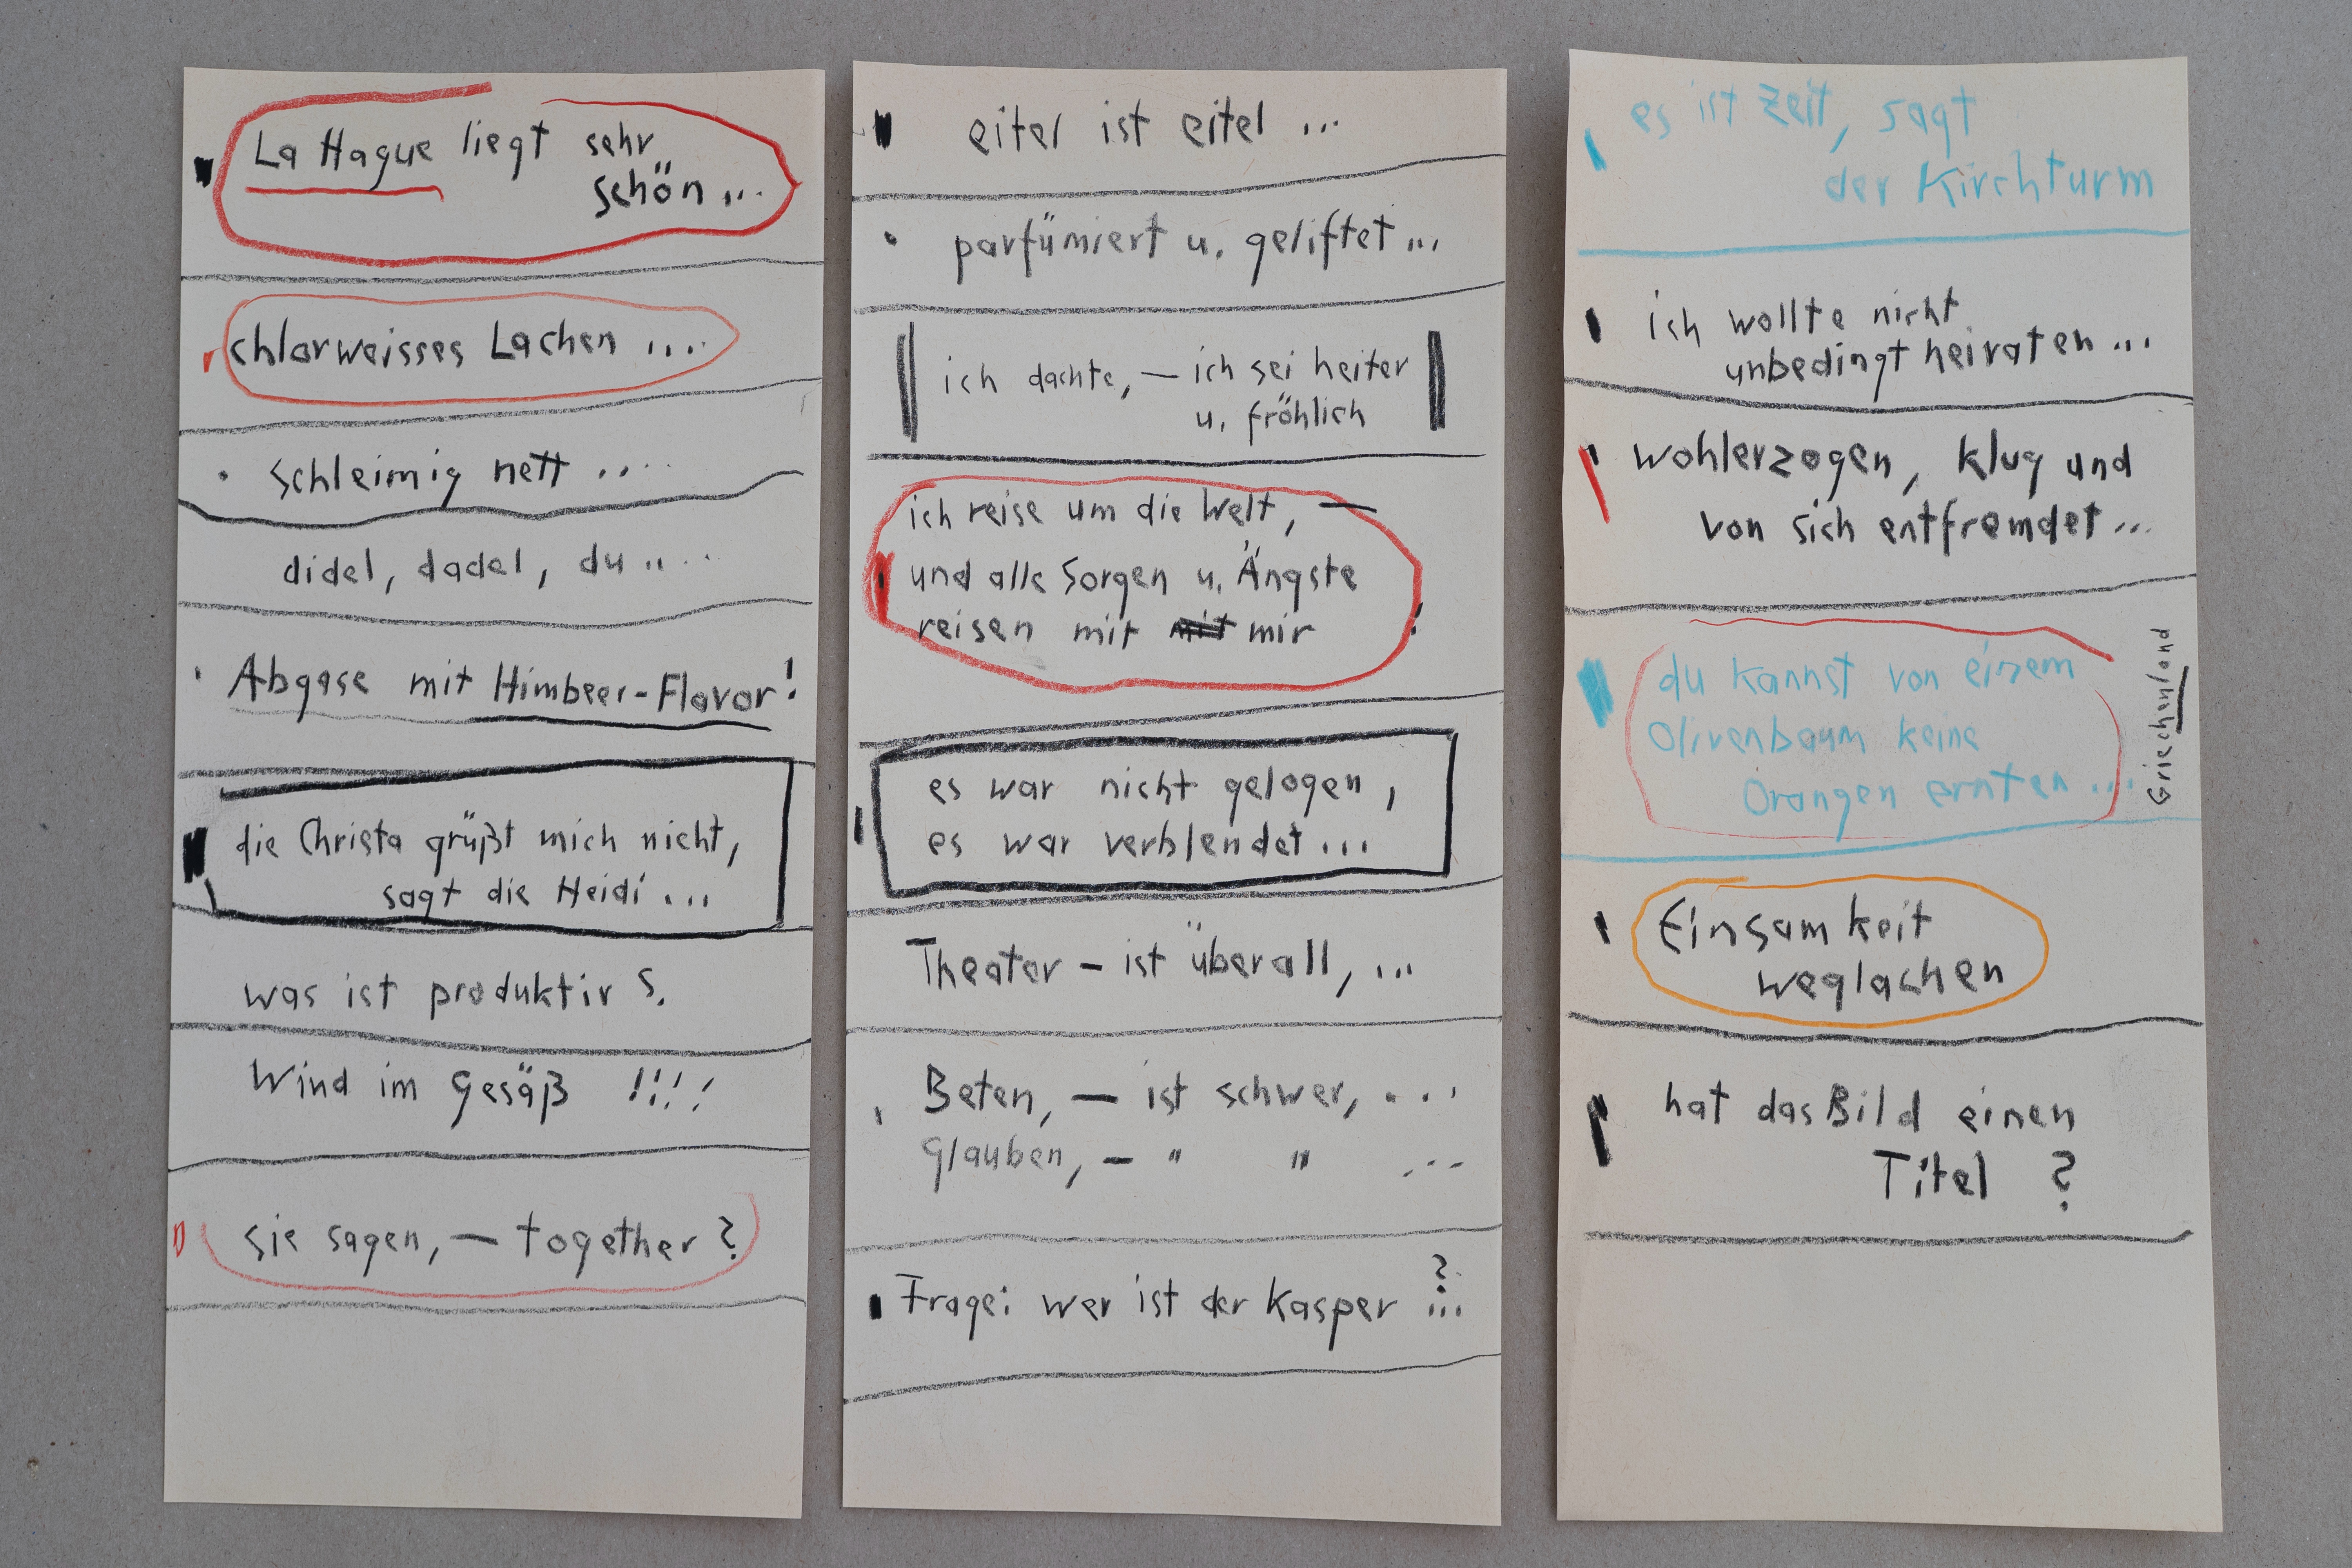 La Hague liegt sehr
schön ...
chlorweisses Lachen ....
schleimig nett .....
didel, dadel, du ....
Abgase mit Himbeer-Flavor!
die Christa grüßt mich nicht,
sagt die Heidi ...
was ist produktiv ?
Wind im Gesäß !!!!
sie sagen, — together ?
eitel ist eitel ...
parfümiert u. geliftet ...
ich dachte, — ich sei heiter
u. fröhlich
ich reise um die Welt, —
und alle Sorgen u. Ängste
reisen mit mir !
es war nicht gelogen,
es war verblendet ...
Theater – ist überall, ...
Beten, — ist schwer, ...
Glauben, – " " ...
Frage: wer ist der Kasper ?...
es ist Zeit, sagt
der Kirchturm
ich wollte nicht
unbedingt heiraten ...
wohlerzogen, klug und
von sich entfremdet ...
du kannst von einem
Olivenbaum keine
Orangen ernten ...
Griechenland
Einsamkeit
weglachen
hat das Bild einen
Titel ?